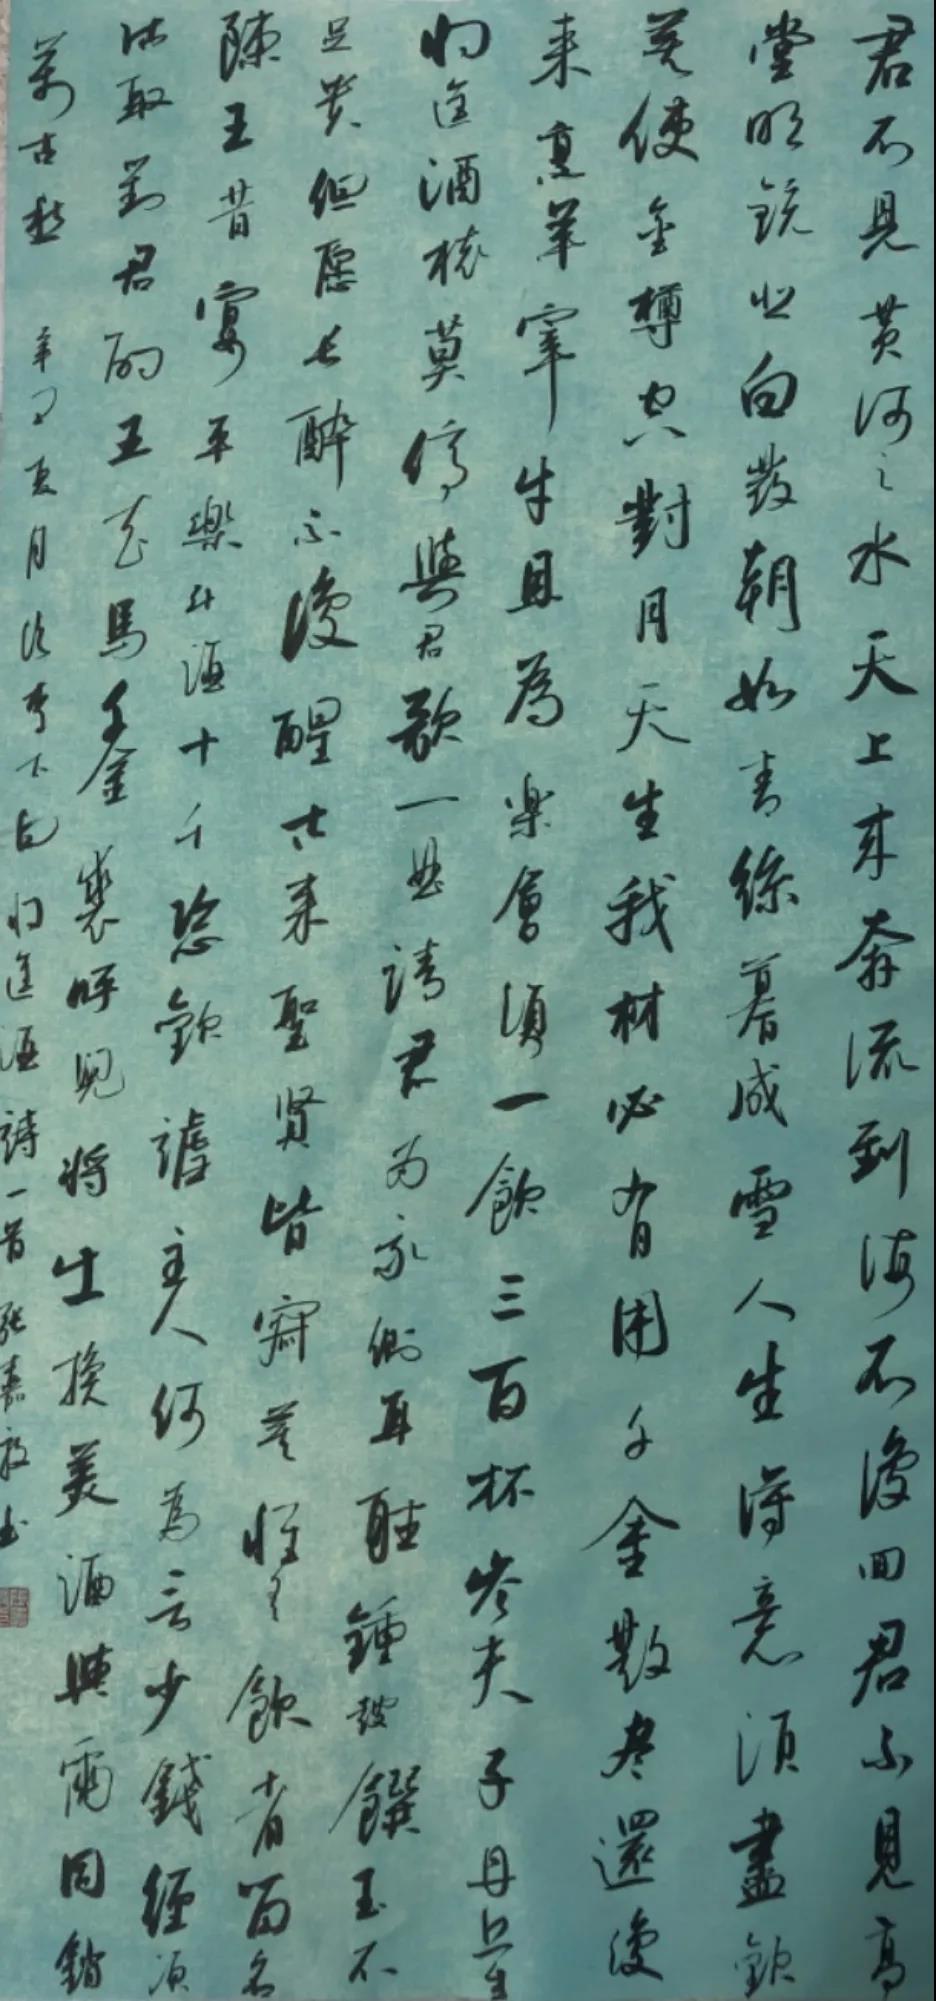 君不見黄河之水天上来奔流到海不復回君不見高
堂明鏡悲白髮朝如青絲暮成雪人生得意須盡歡
莫使金樽空對月天生我材必有用千金散盡還復
来烹羊宰牛且為楽會須一飲三百杯岑夫子丹丘生
将進酒杯莫停與君歌一曲請君为我側耳聽鍾鼓饌玉不
足貴但愿長醉不復醒古来聖賢皆寂寞惟有飲者留名
陳王昔宴平樂斗酒十千恣歡謔主人何為言少錢經須
沽取對君酌五花馬千金裘呼児将出換美酒與爾同銷
萬古愁 辛丑夏月 李太白将進酒詩一首 张嘉 书